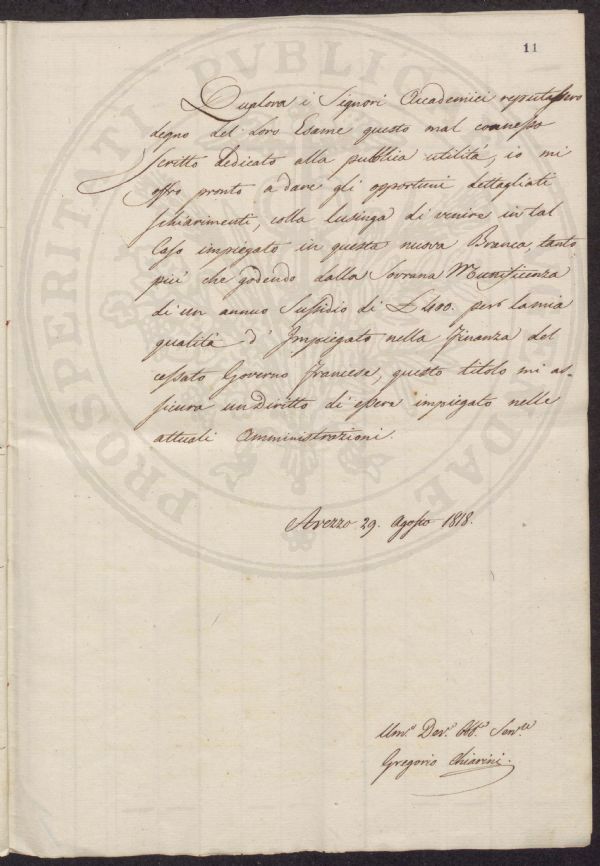 11
Duplora i Signori Accademici reputassero
degno del Loro Esame questo mal connesso
scritto dedicato alla pubblica utilità, io mi
offro pronto a dare gli opportuni dettagliati
schiarimenti, colla lusinga di venire in tal
Caso impiegato in questa nuova Branca, tanto
più che godendo dalla Sovrana Munificenza
di un annuo Sussidio di £ 400. per la mia
qualità d' Impiegato nella Finanza del
cessato Governo Francese, questo titolo mi as-
sicura un Diritto di essere impiegato nelle
attuali Amministrazioni.
Arezzo 29. Agosto 1818.
Umo. Devo. Obo. Serv.re
Gregorio Chiarini.
PROSPERITATI PUBLICAE AUGENDAE